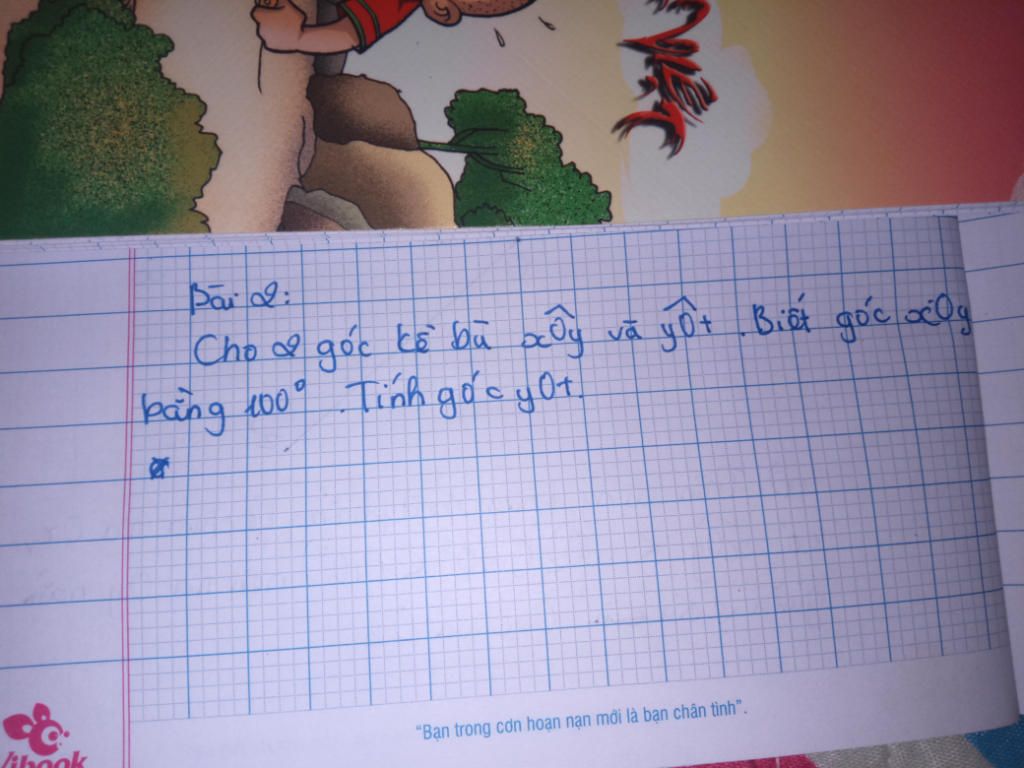 VIỆT
Bài 2:
Cho 2 góc kề bù xÔy và yÔt. Biết góc xOy
bằng 100°. Tính góc yOt.
"Bạn trong cơn hoạn nạn mới là bạn chân tình".
ibook